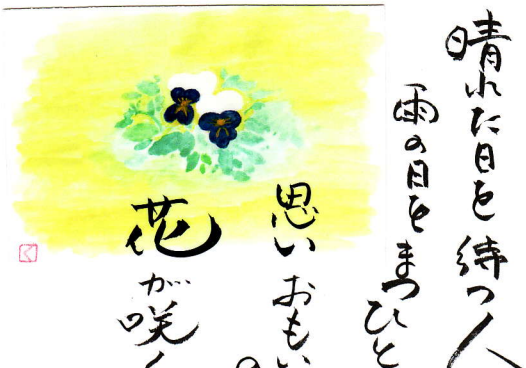 晴れた日を待つ人
雨の日をまつひと
思いおもい
花が咲く